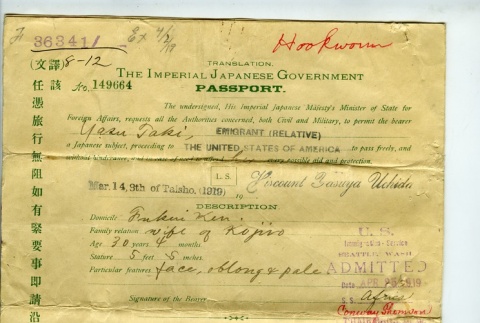 36341/ Ex 4/2/19
Hookworm
8-12
No. 149664
TRANSLATION.
THE IMPERIAL JAPANESE GOVERNMENT
PASSPORT.
The undersigned, His Imperial Japanese Majesty's Minister of State for
Foreign Affairs, requests all the Authorities concerned, both Civil and Military, to permit the bearer
Yasu Taki, EMIGRANT (RELATIVE)
a Japanese subject, proceeding to THE UNITED STATES OF AMERICA to pass freely, and
without hindrance, and her possible aid and protection.
L. S. Viscount Yasuya Uchida
Mar. 14, 8th of Taisho, (1919)
19
DESCRIPTION.
Domicile Fukui Ken.
Family relation wife of Kojiro
Age 30 years 4 months
Stature 5 feet 5 inches
Particular features face, oblong & pale
Signature of the Bearer
U. S.
Immigration Service
SEATTLE, WASH
ADMITTED
Date APR 1919
S. S. Africa
(文譯)
該
任憑旅行無阻如有緊要事即請沿